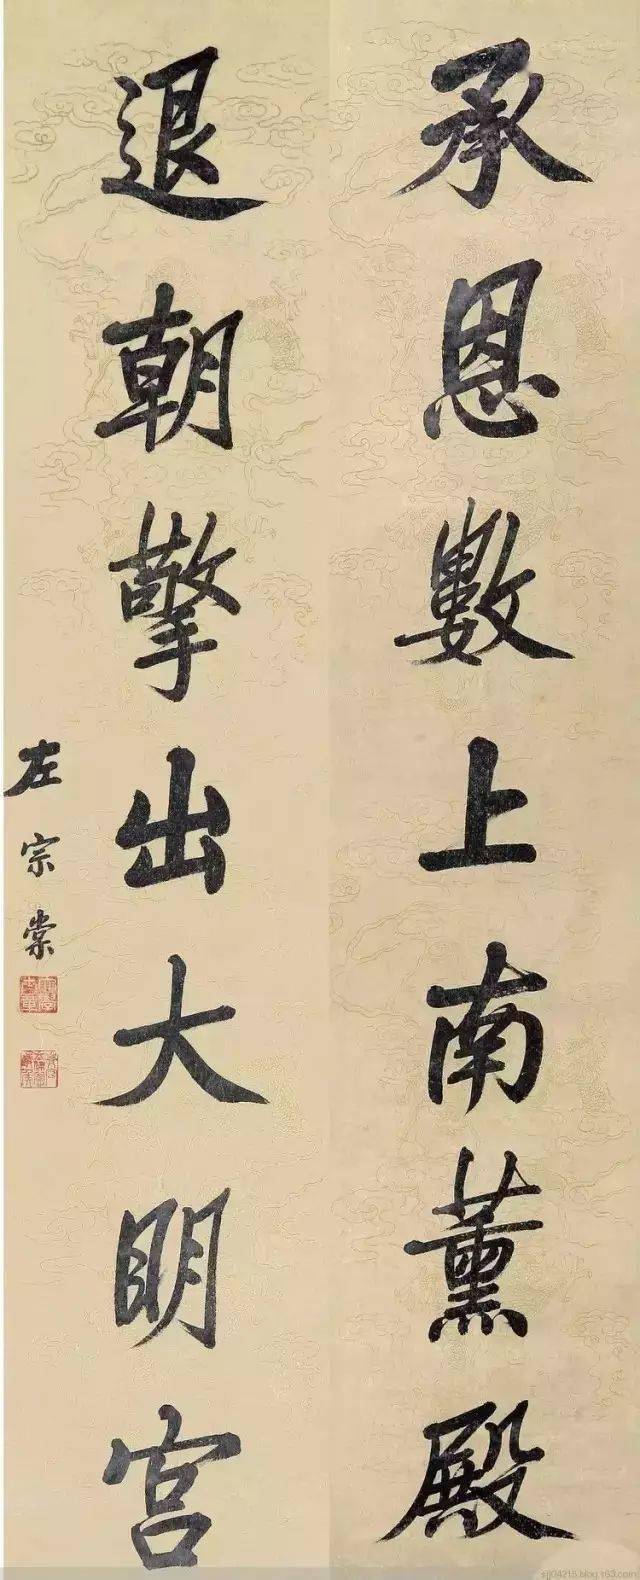 承恩數上南薰殿
退朝擎出大明宮
左宗棠
sjj04215.blog.163.com